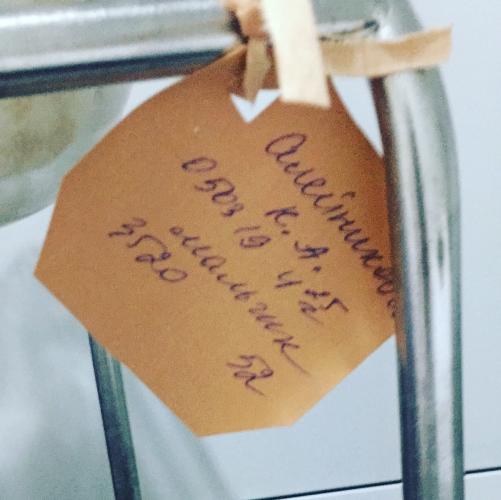 Олейникова
К. А.
050319 4 25
мальчик
3520 52